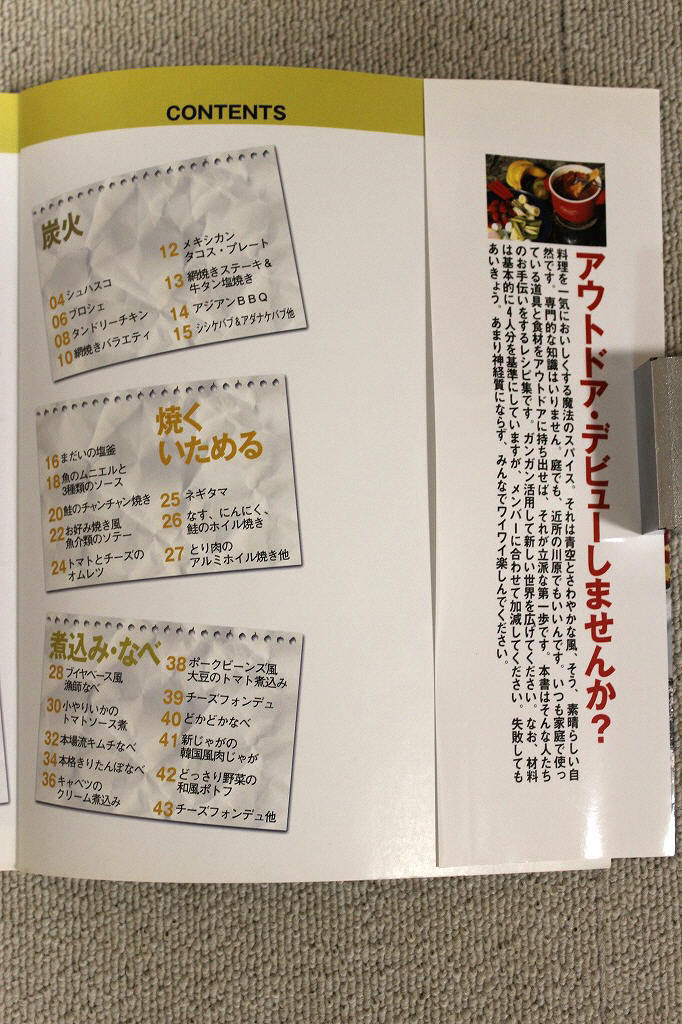 CONTENTS
炭火
04 シュハスコ
06 ブロシェ
08 タンドリーチキン
10 網焼きバラエティ
12 メキシカン
タコス・プレート
13 網焼きステーキ＆
牛タン塩焼き
14 アジアンＢＢＱ
15 シシケバブ＆アダナケバブ他
焼く
いためる
16 まだいの塩釜
18 魚のムニエルと
3種類のソース
20 鮭のチャンチャン焼き
22 お好み焼き風
魚介類のソテー
24 トマトとチーズの
オムレツ
25 ネギタマ
26 なす、にんにく、
鮭のホイル焼き
27 とり肉の
アルミホイル焼き他
煮込み・なべ
28 ブイヤベース風
漁師なべ
30 小やりいかの
トマトソース煮
32 本場流キムチなべ
34 本格きりたんぽなべ
36 キャベツの
クリーム煮込み
38 ポークビーンズ風
大豆のトマト煮込み
39 チーズフォンデュ
40 どかどかなべ
41 新じゃがの
韓国風肉じゃが
42 どっさり野菜の
和風ポトフ
43 チーズフォンデュ他
アウトドア・デビューしませんか？
料理を一気においしくする魔法のスパイス。それは青空とさわやかな風、そう、素晴らしい自
然です。専門的な知識はいりません。庭でも、近所の川原でもいいんです。いつも家庭で使っ
ている道具と食材をアウトドアに持ち出せば、それが立派な第一歩です。本書はそんな人たち
のお手伝いをするレシピ集です。ガンガン活用して新しい世界を広げてください。なお、材料
は基本的に4人分を基準にしていますが、メンバーに合わせて加減してください。失敗しても
あいきょう。あまり神経質にならず、みんなでワイワイ楽しんでください。